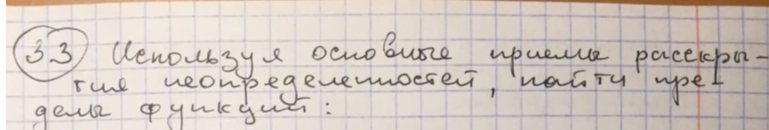 3.3 Используя основные приемы раскры-
тия неопределенностей, найти пре-
делы функций: